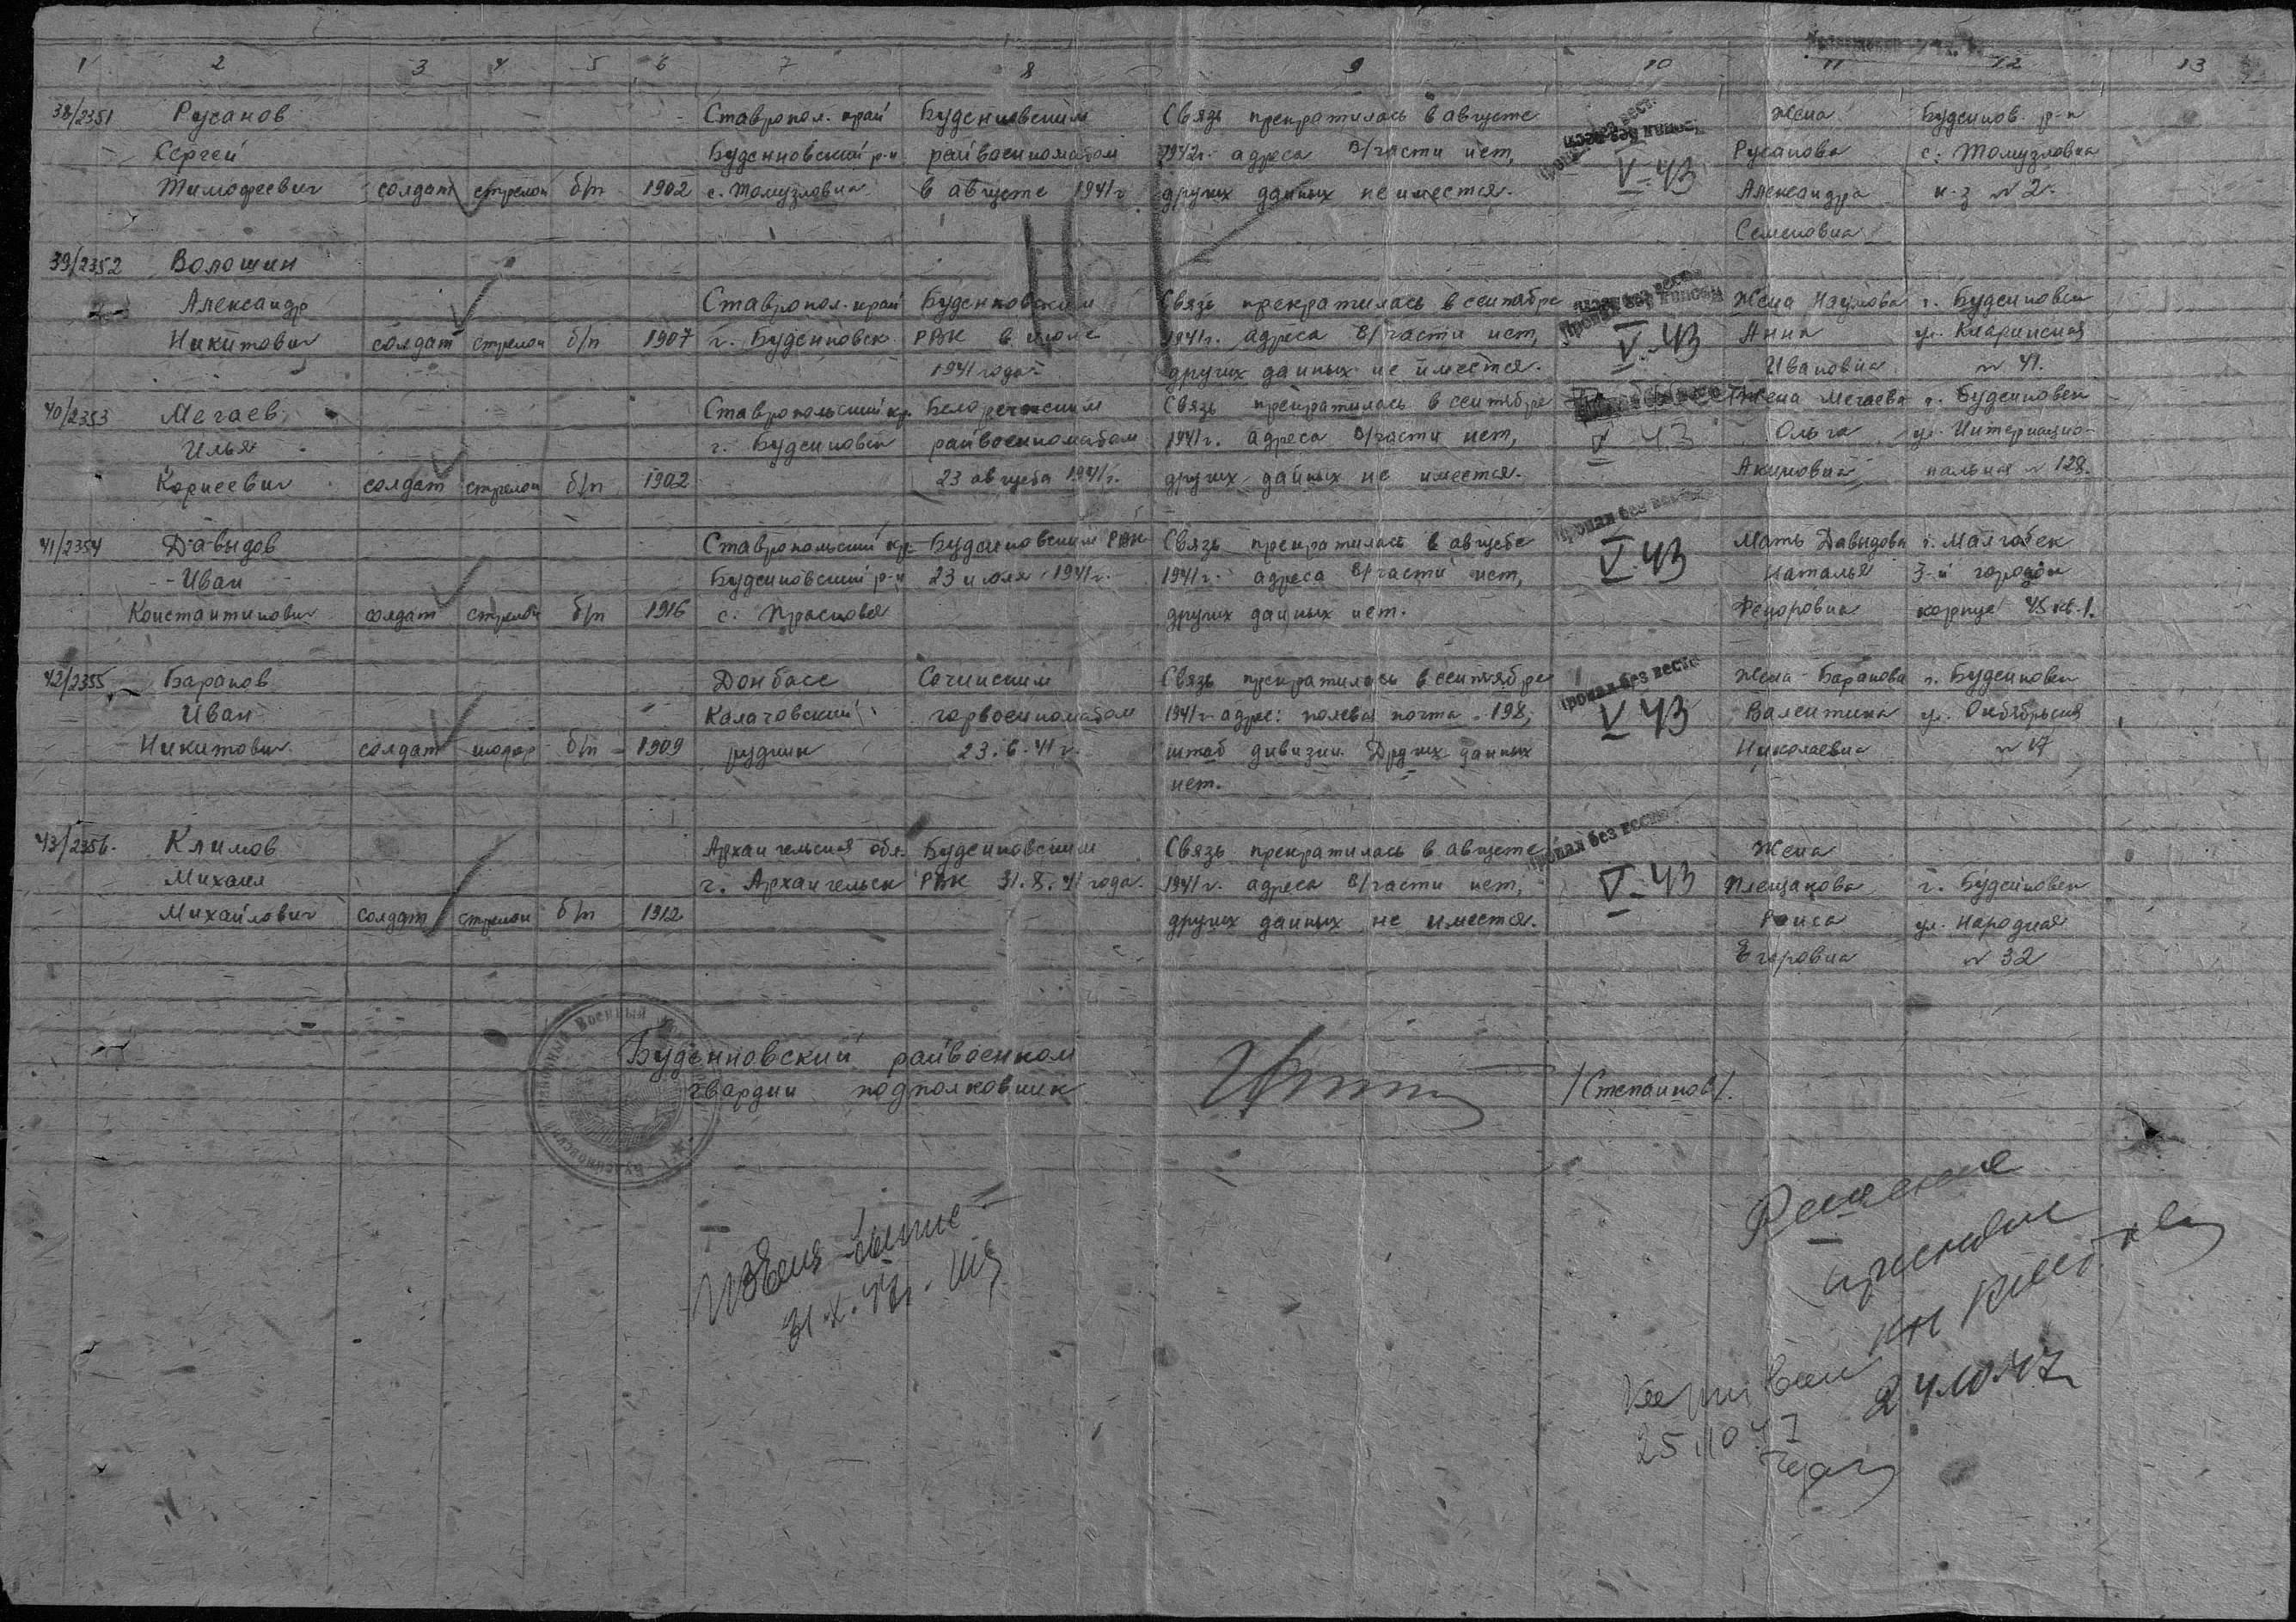 1 2 3 4 5 6 7 8 9 10 11 12 13
38/2351 Русанов Ставропол. край Буденновским Связь прекратилась в августе Жена Буденнов. р-н
Сергей Буденновский р-н райвоенкоматом 1942г. адреса в/части нет, Русанова с. Томузловка
Тимофеевич солдат стрелок б/п 1902 с. Томузловка в августе 1941г других данных не имеется. V-43 Александра к-з №2.
Семеновна
39/2352 Волошин
Александр Ставропол. край Буденновским Связь прекратилась в сентябре Пропал без вести Жена Наумова г. Буденновск
Никитович солдат стрелок б/п 1907 г. Буденновск РВК в июле 1941г. адреса в/части нет, V-43 Анна ул.
1941 года. других данных не имеется. Ивановна № 41.
40/2353 Мегаев Ставропольский кр. Белореченским Связь прекратилась в сентябре Жена Мегаева г. Буденновск
Илья г. Буденновск райвоенкоматом 1941г. адреса в/части нет, V 43 Ольга ул. Интернацио-
Корнеевич солдат стрелок б/п 1902 23 августа 1941г. других данных не имеется. Акимовна нальная № 128.
41/2354 Давыдов Ставропольский кр. Буденновским РВК Связь прекратилась в августе Пропал без вести Мать Давыдова г. Малгобек
Иван Буденновский р-н 23 июля 1941г. 1941г. адреса в/части нет, V-43 Наталья 3-й городок
Константинович солдат стрелок б/п 1916 с. Прасковея других данных нет. Федоровна корпус 45 кв. 1.
42/2355 Баранов Донбасс Сочинским Связь прекратилась в сентябре Пропал без вести Жена Баранова г. Буденновск
Иван Калачовский горвоенкоматом 1941г адрес: полевая почта 198, V 43 Валентина ул. Октябрьская
Никитович солдат шофер б/п 1909 рудник 23.6.41г. штаб дивизии. Других данных Николаевна № 17
нет.
43/2356. Климов Архангельская обл. Буденновским Связь прекратилась в августе Пропал без вести Жена
Михаил г. Архангельск РВК 31.8.41 года. 1941г. адреса в/части нет, V-43 Плещакова г. Буденновск
Михайлович солдат стрелок б/п 1912 других данных не имеется. Раиса ул. Народная
Егоровна № 32
Буденновский райвоенком
гвардии подполковник /Степанов/.
Решение
24.10.47
25.10 47